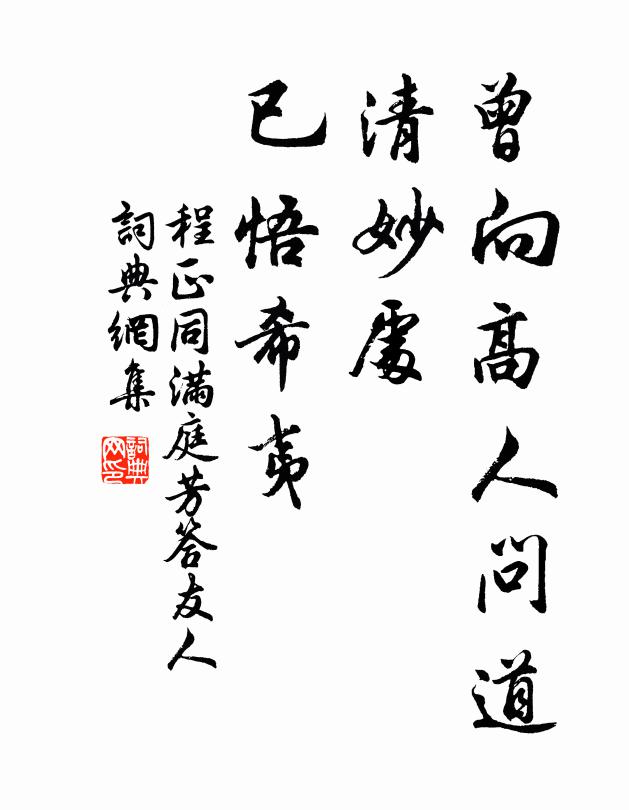 曾向高人問道
清妙處
已悟希夷
程正同滿庭芳答友人
詞典網集
詞典网印